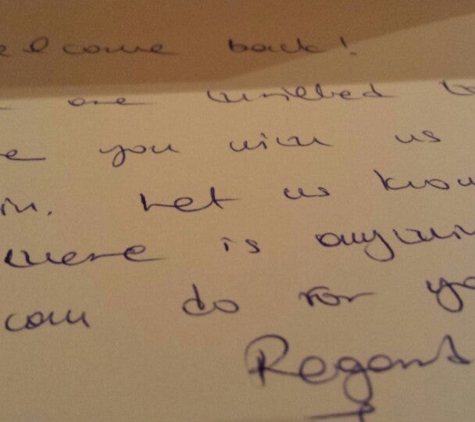 elcome back!
are thrilled to
e you with us
in. Let us know
there is anythin
can do for yo
Regards